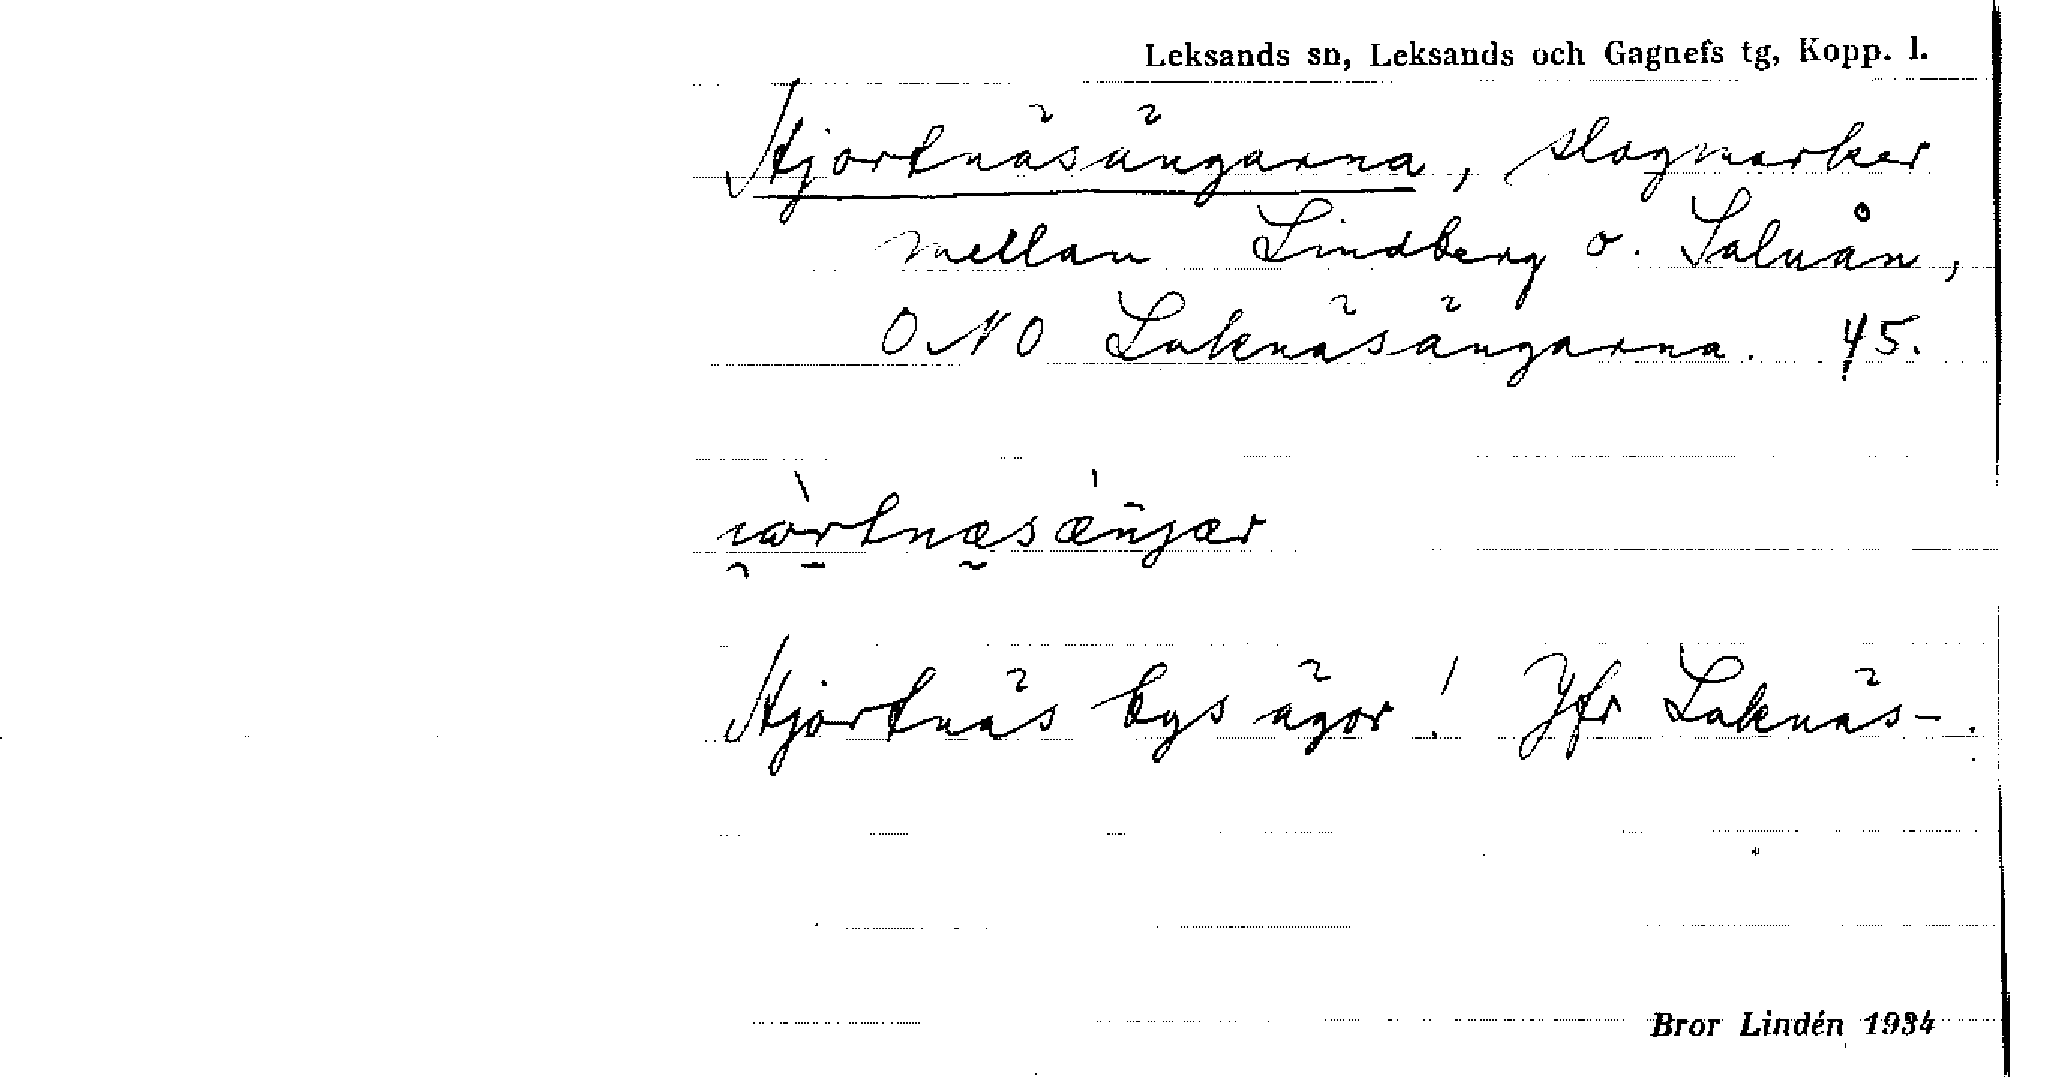 Leksands sn, Leksands och Gagnefs tg, Kopp. l.
Hjortnäsängarna, slogmarker
mellan Lindberg o. Saluån,
ONO Laknäsängarna. 45.
Hjortnäs bys ägor! Jfr Laknäs-.
Bror Lindén 1934